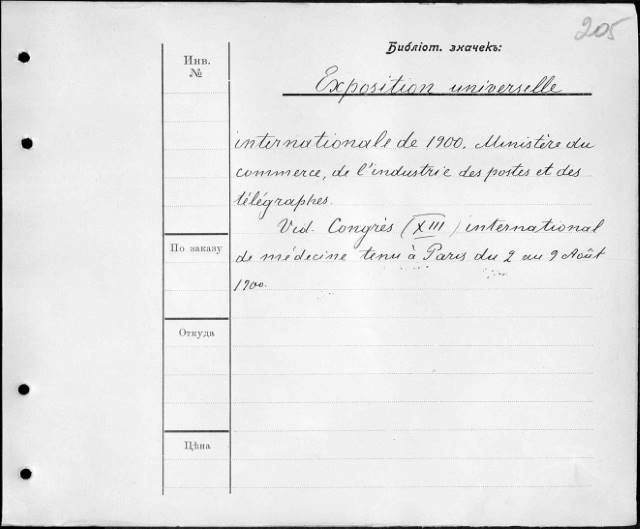 205
Библіот. значекъ:
Инв.
№
Exposition universelle
internationale de 1900. Ministère du
commerce, de l'industrie des postes et des
télégraphes.
Vid. Congrès (XIII) international
По заказу
de médecine tenu à Paris du 2 au 9 Août
1900.
Откуда
Цѣна